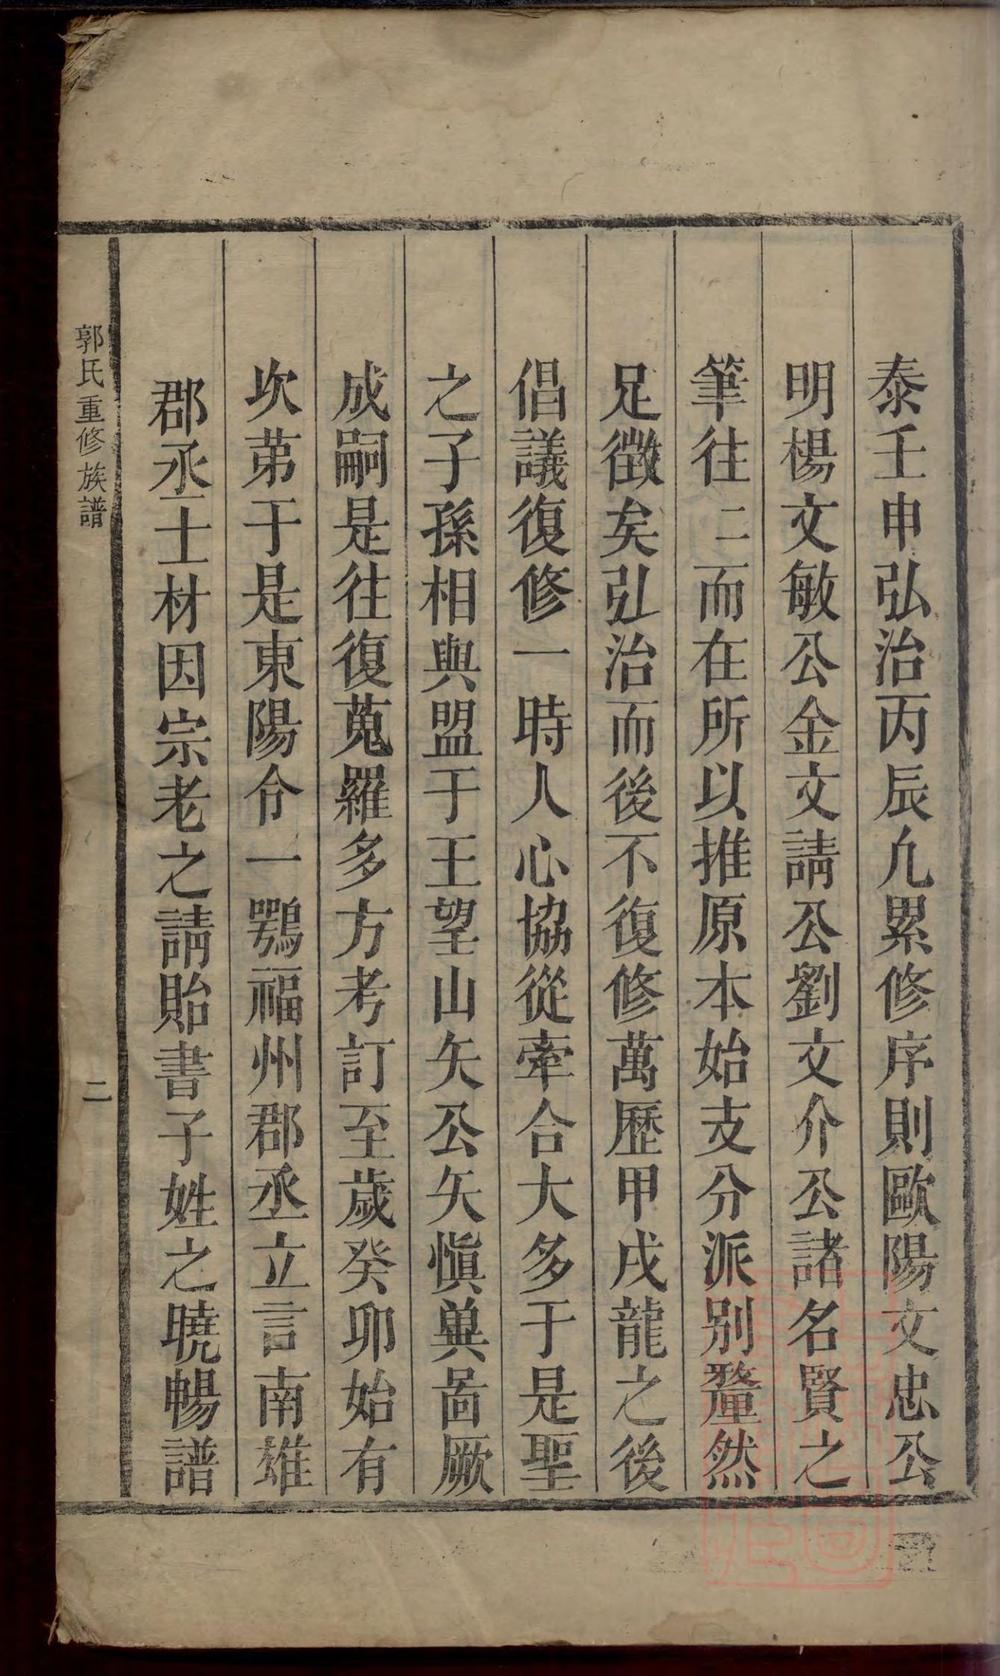 泰壬申弘治丙辰凢累修序則歐陽文忠公
明楊文敏公金文請公劉文介公諸名賢之
筆往二而在所以推原本始支分派别釐然
足徴矣弘治而後不復修萬歷甲戌龍之後
倡議復修一時人心協從牽合大多于是聖
之子孫相與盟于王望山矢公矢慎兾啚厥
成嗣是往復蒐羅多方考訂至歲癸卯始有
次苐于是東陽令一鶚福州郡丞立言南雄
郡丞士材因宗老之請貽書子姓之曉暢譜
郭氏重修族譜
二